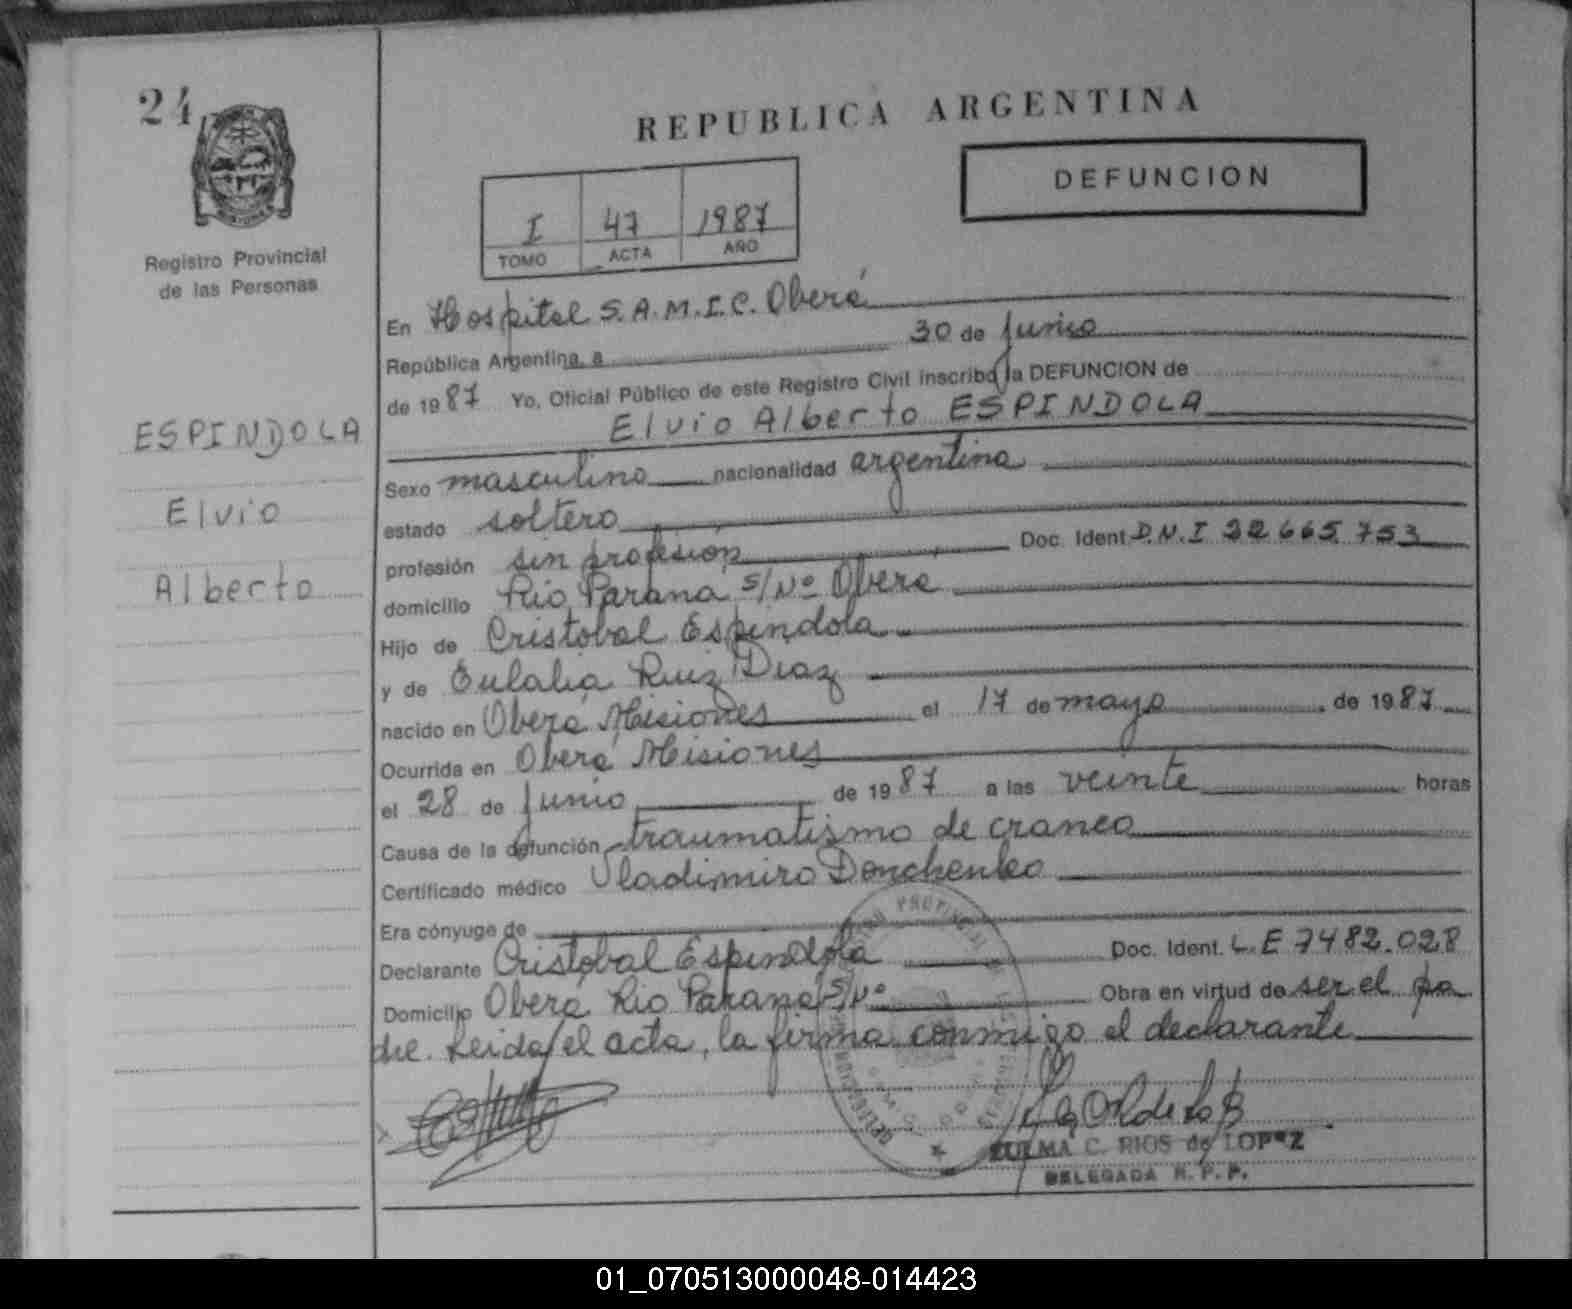 24
REPUBLICA ARGENTINA
DEFUNCION
I 47 1987
TOMO ACTA AÑO
Registro Provincial
de las Personas
En Hospital S.A.M.I.C. Oberá
República Argentina, a 30 de Junio
de 1987 Yo, Oficial Público de este Registro Civil inscribo la DEFUNCION de
Elvio Alberto ESPINDOLA
ESPINDOLA
Elvio
Alberto
Sexo masculino nacionalidad argentina
estado soltero
profesión sin profesión Doc. Ident D.N.I 32.665.753
domicilio Rio Parana s/Nº Obera
Hijo de Cristobal Espindola
y de Eulalia Ruiz Diaz
nacido en Oberá Misiones el 17 de mayo de 1987
Ocurrida en Oberá Misiones
el 28 de Junio de 1987 a las veinte horas
Causa de la defunción traumatismo de craneo
Certificado médico Vladimiro Donchenko
Era cónyuge de
Declarante Cristobal Espindola Doc. Ident. L.E 7482.028
Domicilio Oberá Rio Parana S/Nº Obra en virtud de ser el pa
dre. Leida el acta, la firma conmigo el declarante
ZULMA C. RIOS de LOPEZ
DELEGADA R. P. P.
01_070513000048-014423